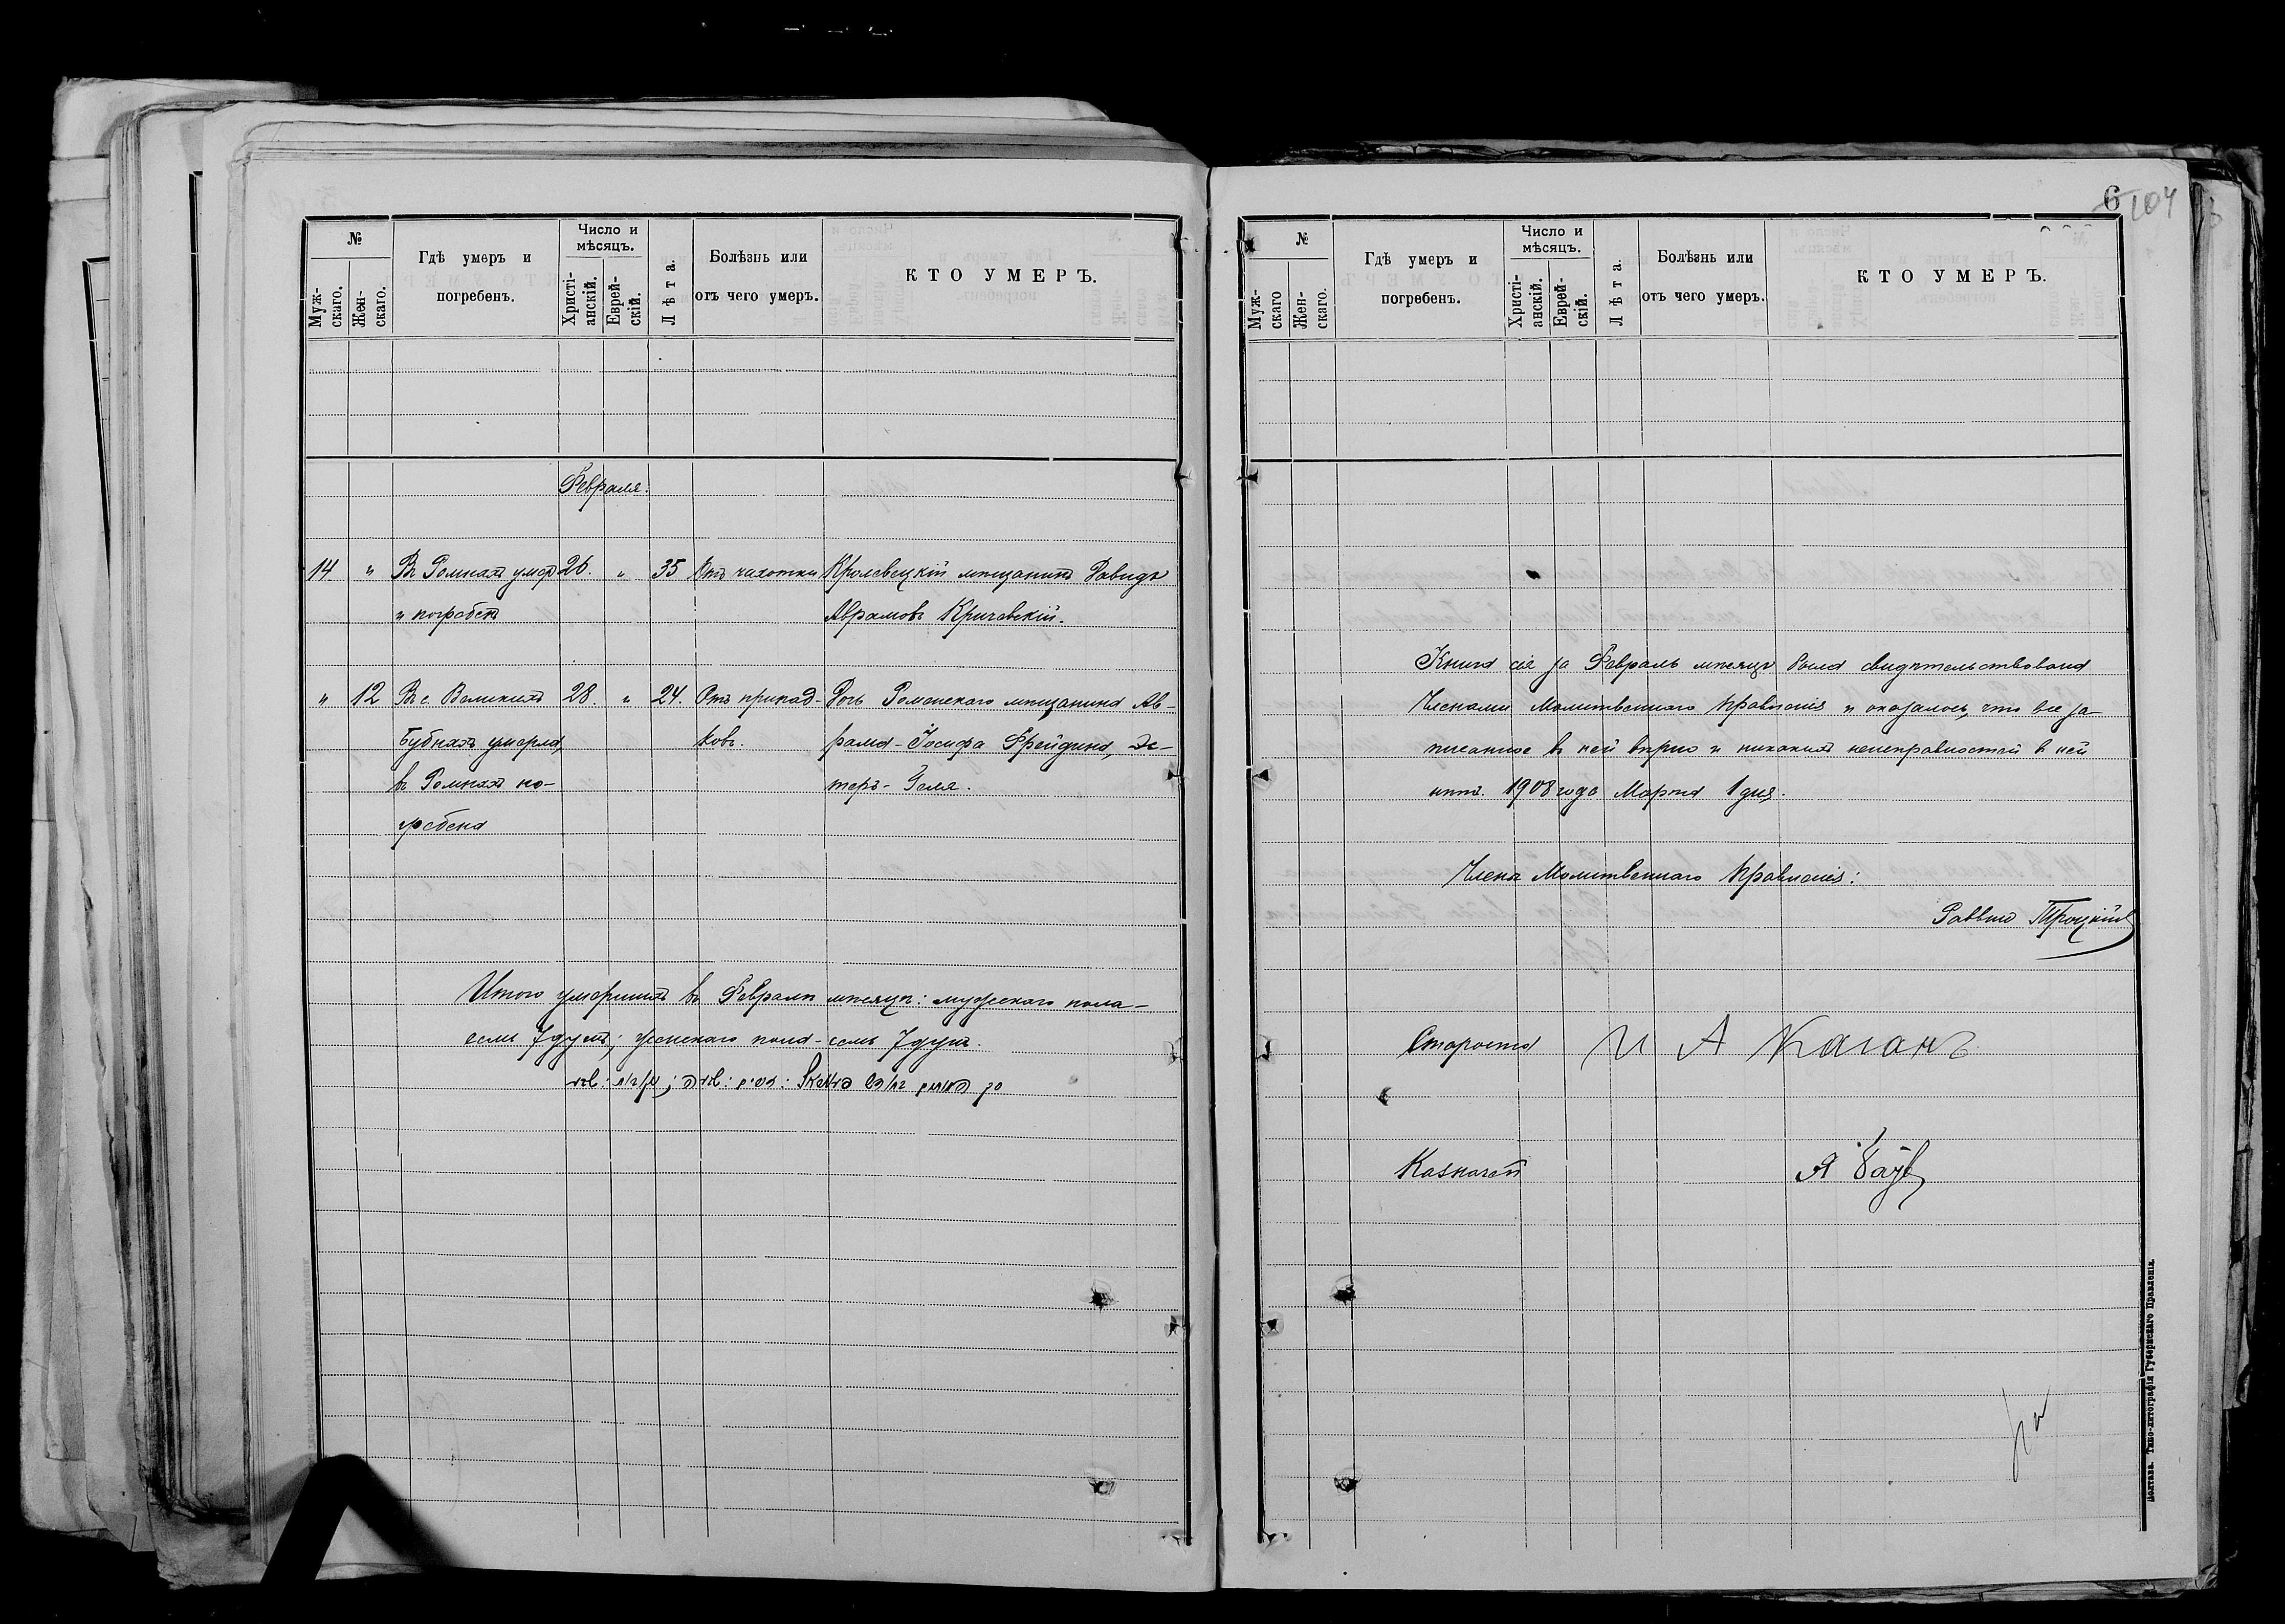 №
Муж-
скаго.
Жен-
скаго.
Гдѣ умеръ и
погребенъ.
Число и
мѣсяцъ.
Христі-
анскій.
Еврей-
скій.
Лѣта.
Болѣзнь или
отъ чего умеръ.
КТО УМЕРЪ.
Февраля.
14 " Въ Ромнахъ умеръ 26. " 35 Отъ чахотки Кролевецкій мѣщанинъ Давидъ
и погребенъ Аврамовъ Кричевскій.
" 12 Въ с. Великихъ 28. " 24. Отъ припад- Дочь Роменскаго мѣщанина Ав-
Бубнахъ умерла, ковъ. рама-Іосифа Фрейдина, Эс-
въ Ромнахъ по- теръ-Геля.
гребена
Итого умершихъ въ Февралѣ мѣсяцѣ: мужескаго пола-
семь 7 душъ; женскаго пола-семь 7 душъ.
6 104
№
Муж-
скаго
Жен-
скаго.
Гдѣ умеръ и
погребенъ.
Число и
мѣсяцъ.
Христі-
анскій.
Еврей-
скій.
Лѣта.
Болѣзнь или
отъ чего умеръ.
КТО УМЕРЪ.
Книга сія за Февраль мѣсяцъ была свидѣтельствована
Членами Молитвеннаго Правленія и оказалось, что все за-
писанное въ ней вѣрно и никакихъ неисправностей въ ней
нѣтъ. 1908 года Марта 1 дня.
Члены Молитвеннаго Правленія:
Раввинъ Троцкій
Староста И А Каганъ
Казначей Я
Полтава. Типо-литографія Губернскаго Правленія.